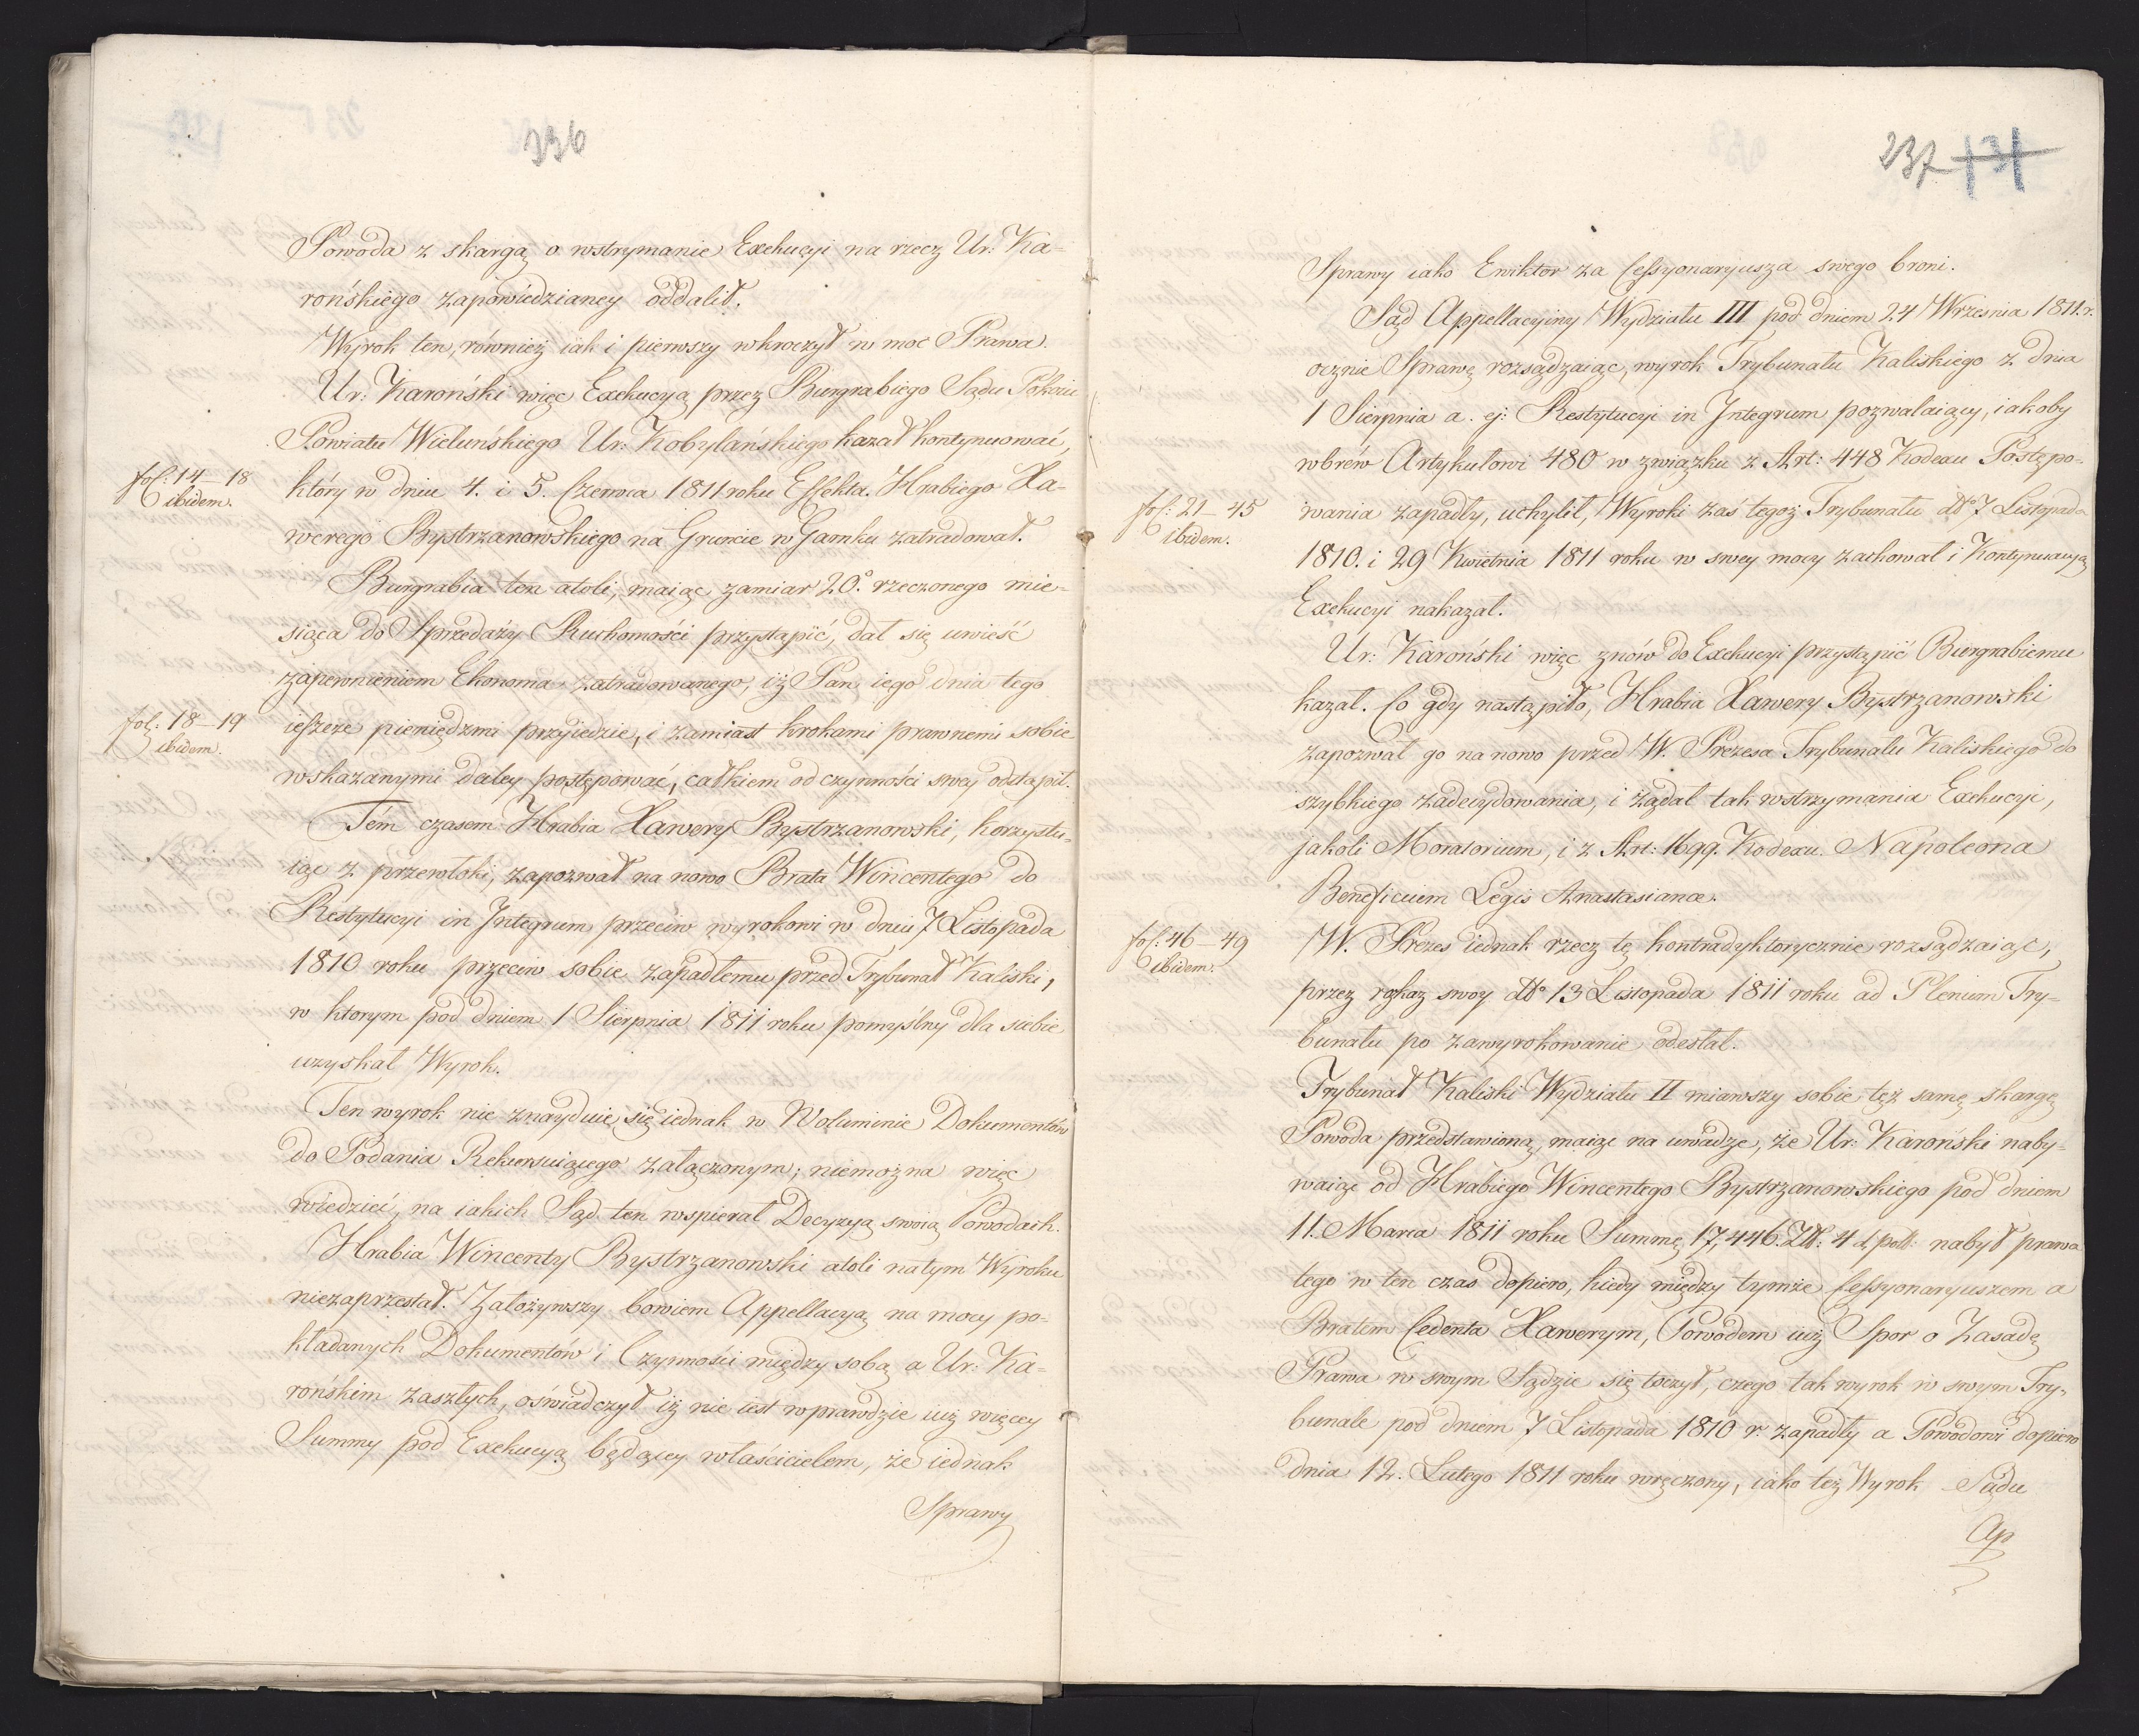 236
Powoda z skargą o wstrzymanie Exekucyi na rzecz Ur: Ka-
rońskiego zapowiedzianey oddalił.
Wyrok ten, również iak i pierwszy wkroczył w moc Prawa.
Ur: Karoński więc Exekucyą przez Burgrabiego Sądu Pokoiu
Powiatu Wieluńskiego Ur: Kobylańskiego kazał kontynuować,
fol: 14–18
ibidem.
który w dniu 4. i 5. Czerwca 1811 roku Effekta Hrabiego Xa-
werego Bystrzanowskiego na Gruncie w Garnku zatradował.
Burgrabia ten atoli, maiąc zamiar 20.° rzeczonego mie-
siąca do Sprzedaży Ruchomości przystąpić, dał się uwieść
zapewnieniem Ekonoma zatradowanego, iż Pan iego dnia tego
fol: 18–19
ibidem.
ieszcze pieniędzmi przyiedzie, i zamiast krokami prawnemi sobie
wskazanymi daley postępować, całkiem od czynności swey odstąpił.
Tém czasem Hrabia Xawery Bystrzanowski, korzystu-
iąc z przewłoki, zapozwał na nowo Brata Wincentego do
Restytucyi in Integrum przeciw wyrokowi w dniu 7 Listopada
1810 roku przeciw sobie zapadłemu przed Trybunał Kaliski,
w ktorym pod dniem 1 Sierpnia 1811 roku pomyślny dla siebie
uzyskał Wyrok.
Ten wyrok nie znayduie się iednak w Woluminie Dokumentów
do Podania Rekursuiącego załączonym; niemożna więc
wiedzieć, na iakich Sąd ten wspierał Decyzyą swoią Powodach.
Hrabia Wincenty Bystrzanowski atoli na tym Wyroku
niezaprzestał. Założywszy bowiem Appellacyą na mocy po-
kładanych Dokumentów i Czynności między sobą a Ur: Ka-
rońskim zaszłych, oświadczył iż nie iest wprawdzie iuż więcey
Summy pod Exekucyą będącey właścicielem, że iednak
Sprawy
237 131
Sprawy iako Ewiktor za Cessyonaryusza swego broni.
Sąd Appellacyiny Wydziału III pod dniem 24 Września 1811. r.
ocznie Sprawę rozsądzaiąc, wyrok Trybunału Kaliskiego z dnia
1 Sierpnia a. ej: Restytucyi in Integrum pozwalaiący, iakoby
wbrew Artykułowi 480 w związku z Art: 448 Kodexu Postępo-
fol: 21–45
ibidem.
wania zapadły, uchylił, Wyroki zaś tegoż Trybunału dto 7 Listopada
1810. i 29 Kwietnia 1811 roku w swey mocy zachował i Kontynuacyą
Exekucyi nakazał.
Ur: Karoński więc znów do Exekucyi przystąpić Burgrabiemu
kazał. Co gdy nastąpiło, Hrabia Xawery Bystrzanowski
zapozwał go na nowo przed W. Prezesa Trybunału Kaliskiego do
szybkiego zadecydowania, i żądał tak wstrzymania Exekucyi,
jakoli Moratorium, i z Art: 1699. Kodexu Napoleona
Beneficium Legis Anastasianæ.
fol: 46–49
ibidem.
W. Prezes iednak rzecz tę kontradyktorycznie rozsądzaiąc,
przez rozkaz swoy dto 13 Listopada 1811 roku ad Plenum Try-
bunału po zawyrokowanie odesłał.
Trybunał Kaliski Wydziału II miawszy sobie też samę skargę
Powoda przedstawioną, maiąc na uwadze, że Ur: Karoński naby-
waiąc od Hrabiego Wincentego Bystrzanowskiego pod dniem
11. Marca 1811 roku Summę 17,446. Złł: 4 d. poll: nabył prawa
tego w ten czas dopiero, kiedy między tymże Cessyonaryuszem a
Bratem Cedenta Xawerym, Powodem iuż Spor o Zasadę
Prawa w swym Sądzie się toczył, czego tak wyrok w swym Try-
bunale pod dniem 7 Listopada 1810 r. zapadły a Powodowi dopiero
dnia 12. Lutego 1811 roku wręczony, iako też Wyrok Sądu
Ap